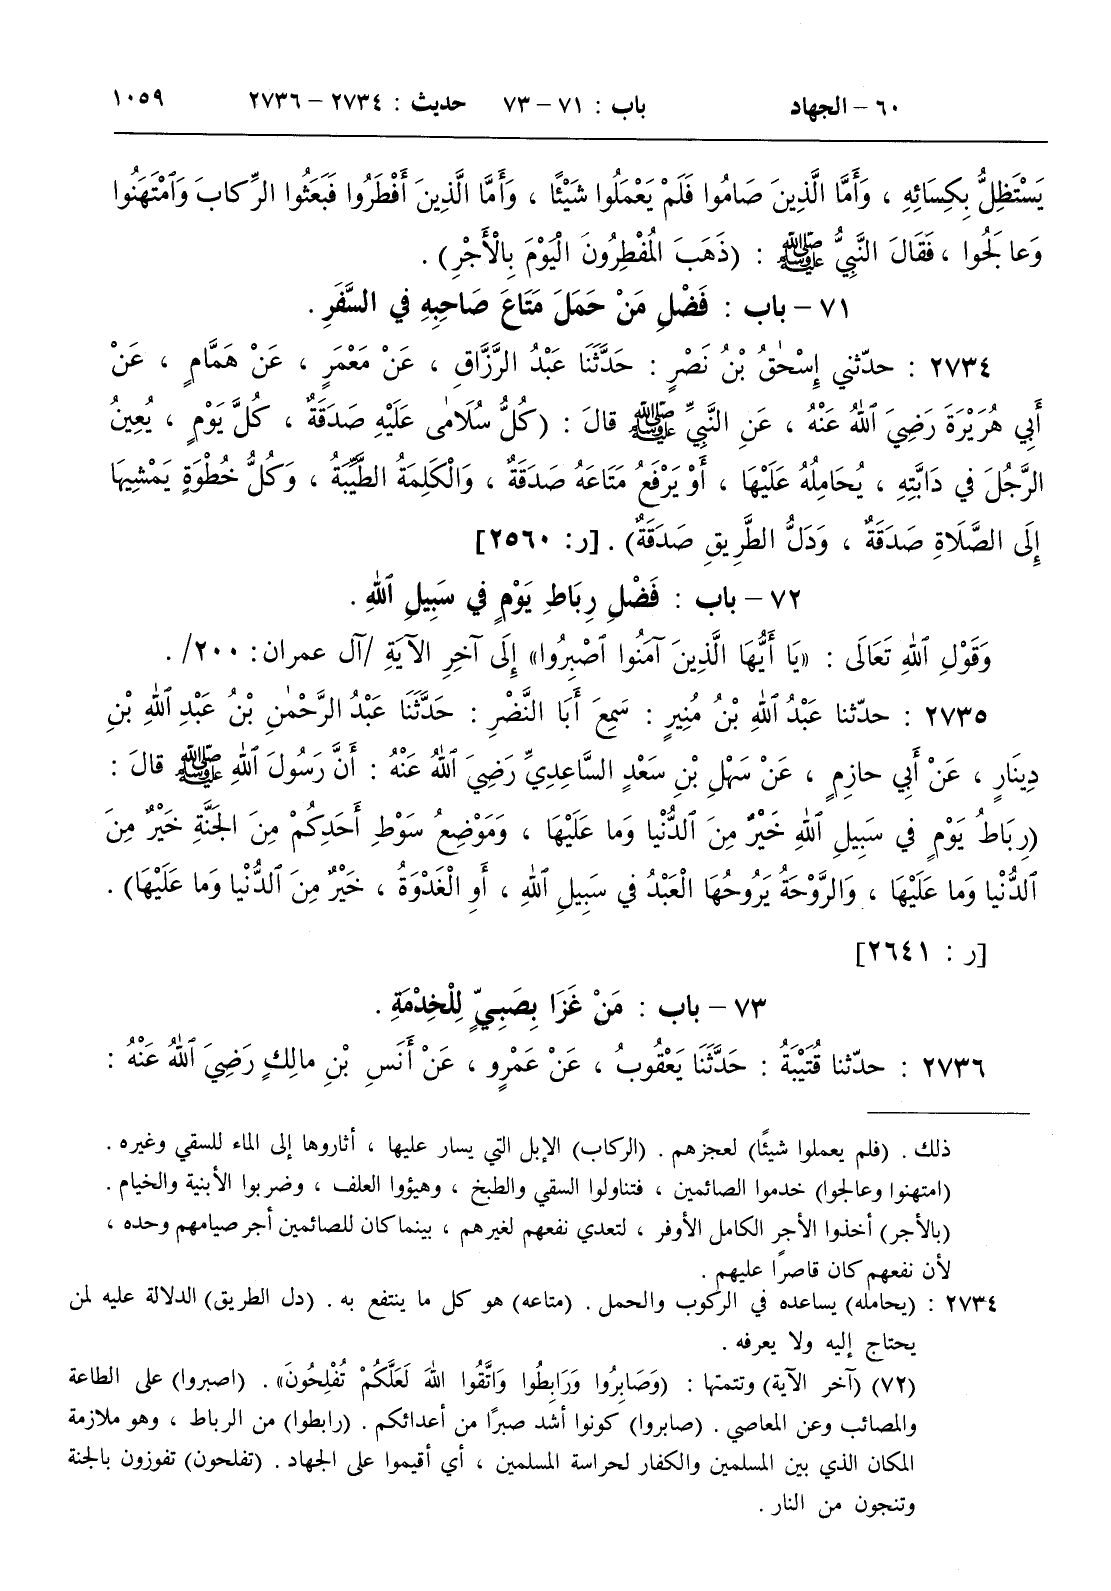 ٦٠ – الجهاد باب : ٧١ – ٧٣ حديث : ٢٧٣٤ – ٢٧٣٦ ١٠٥٩
يَسْتَظِلُّ بِكِسَائِهِ ، وَأَمَّا الَّذِينَ صَامُوا فَلَمْ يَعْمَلُوا شَيْئًا ، وَأَمَّا الَّذِينَ أَفْطَرُوا فَبَعَثُوا الرِّكابَ وَٱمْتَهَنُوا
وَعالَجُوا ، فَقَالَ النَّبِيُّ ﷺ : (ذَهَبَ المُفْطِرُونَ الْيَوْمَ بِالْأَجْرِ) .
٧١ – باب : فَضْلِ مَنْ حَمَلَ مَتَاعَ صَاحِبِهِ فِي السَّفَرِ .
٢٧٣٤ : حدّثني إِسْحٰقُ بْنُ نَصْرٍ : حَدَّثَنَا عَبْدُ الرَّزَّاقِ ، عَنْ مَعْمَرٍ ، عَنْ هَمَّامٍ ، عَنْ
أَبِي هُرَيْرَةَ رَضِيَ ٱللهُ عَنْهُ ، عَنِ النَّبِيِّ ﷺ قالَ : (كُلُّ سُلَامٰى عَلَيْهِ صَدَقَةٌ ، كُلَّ يَوْمٍ ، يُعِينُ
الرَّجُلَ فِي دَابَّتِهِ ، يُحَامِلُهُ عَلَيْهَا ، أَوْ يَرْفَعُ مَتَاعَهُ صَدَقَةٌ ، وَالْكَلِمَةُ الطَّيِّبَةُ ، وَكُلُّ خُطْوَةٍ يَمْشِيهَا
إِلَى الصَّلَاةِ صَدَقَةٌ ، وَدَلُّ الطَّرِيقِ صَدَقَةٌ) . [ر: ٢٥٦٠]
٧٢ – باب : فَضْلِ رِبَاطِ يَوْمٍ فِي سَبِيلِ ٱللهِ .
وَقَوْلِ ٱللهِ تَعَالَى : «يَا أَيُّهَا الَّذِينَ آمَنُوا ٱصْبِرُوا» إِلَى آخِرِ الآيَةِ /آل عمران: ٢٠٠/ .
٢٧٣٥ : حدّثنا عَبْدُ ٱللهِ بْنُ مُنِيرٍ : سَمِعَ أَبَا النَّضْرِ : حَدَّثَنَا عَبْدُ الرَّحْمٰنِ بْنُ عَبْدِ ٱللهِ بْنِ
دِينَارٍ ، عَنْ أَبِي حازِمٍ ، عَنْ سَهْلِ بْنِ سَعْدٍ السَّاعِدِيِّ رَضِيَ ٱللهُ عَنْهُ : أَنَّ رَسُولَ ٱللهِ ﷺ قالَ :
(رِبَاطُ يَوْمٍ فِي سَبِيلِ ٱللهِ خَيْرٌ مِنَ ٱلدُّنْيَا وَما عَلَيْهَا ، وَمَوْضِعُ سَوْطِ أَحَدِكُمْ مِنَ الجَنَّةِ خَيْرٌ مِنَ
ٱلدُّنْيَا وَما عَلَيْهَا ، وَالرَّوْحَةُ يَرُوحُهَا الْعَبْدُ فِي سَبِيلِ ٱللهِ ، أَوِ الْغَدْوَةُ ، خَيْرٌ مِنَ ٱلدُّنْيَا وَما عَلَيْهَا) .
[ر : ٢٦٤١]
٧٣ – باب : مَنْ غَزَا بِصَبِيٍّ لِلْخِدْمَةِ .
٢٧٣٦ : حدّثنا قُتَيْبَةُ : حَدَّثَنَا يَعْقُوبُ ، عَنْ عَمْرٍو ، عَنْ أَنَسِ بْنِ مالِكٍ رَضِيَ ٱللهُ عَنْهُ :
ذلك . (فلم يعملوا شيئًا) لعجزهم . (الركاب) الإبل التي يسار عليها ، أثاروها إلى الماء للسقي وغيره .
(امتهنوا وعالجوا) خدموا الصائمين ، فتناولوا السقي والطبخ ، وهيؤوا العلف ، وضربوا الأبنية والخيام .
(بالأجر) أخذوا الأجر الكامل الأوفر ، لتعدي نفعهم لغيرهم ، بينما كان للصائمين أجر صيامهم وحده ،
لأن نفعهم كان قاصرًا عليهم .
٢٧٣٤ : (يحامله) يساعده في الركوب والحمل . (متاعه) هو كل ما ينتفع به . (دل الطريق) الدلالة عليه لمن
يحتاج إليه ولا يعرفه .
(٧٢) (آخر الآية) وتتمتها : (وَصَابِرُوا وَرَابِطُوا وَاتَّقُوا اللهَ لَعَلَّكُمْ تُفْلِحُونَ» . (اصبروا) على الطاعة
والمصائب وعن المعاصي . (صابروا) كونوا أشد صبرًا من أعدائكم . (رابطوا) من الرباط ، وهو ملازمة
المكان الذي بين المسلمين والكفار لحراسة المسلمين ، أي أقيموا على الجهاد . (تفلحون) تفوزون بالجنة
وتنجون من النار .